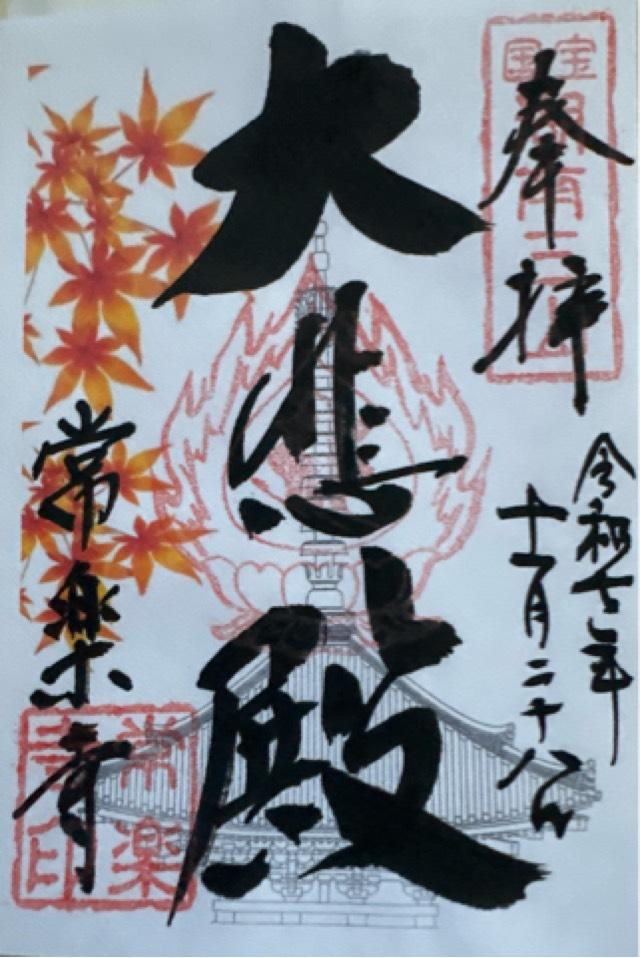 国宝
湖南三山
奉拝
令和七年
十一月二十八日
大悲殿
常楽寺
常楽寺印